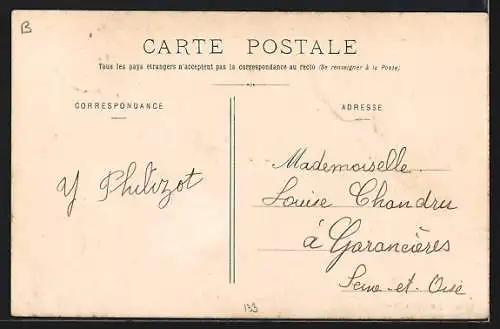 B
CARTE POSTALE
Tous les pays étrangers n'acceptent pas la correspondance au recto (Se renseigner à la Poste)
CORRESPONDANCE
ADRESSE
Y Philizot
Mademoiselle
Louise Chandru
à Garancières
Seine-et-Oise
133